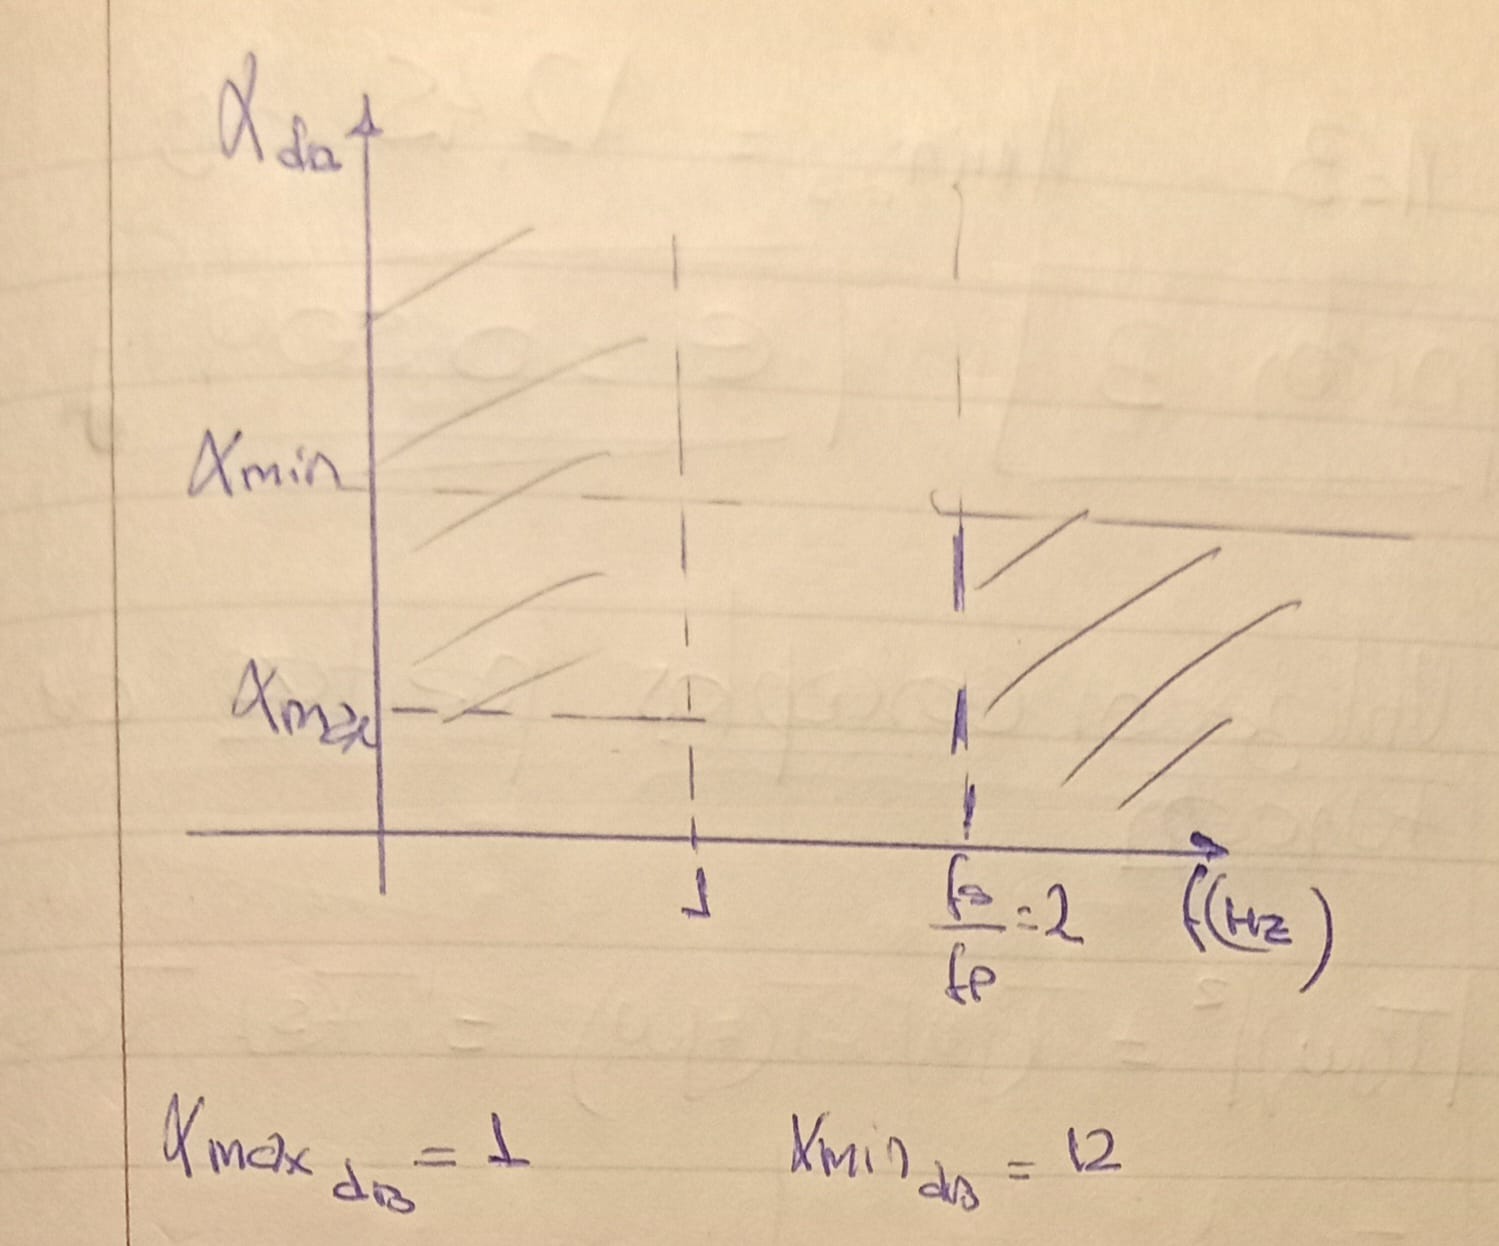 α dB
αmin
αmax
1
fs/fp = 2
f(Hz)
αmax dB = 1
αmin dB = 12